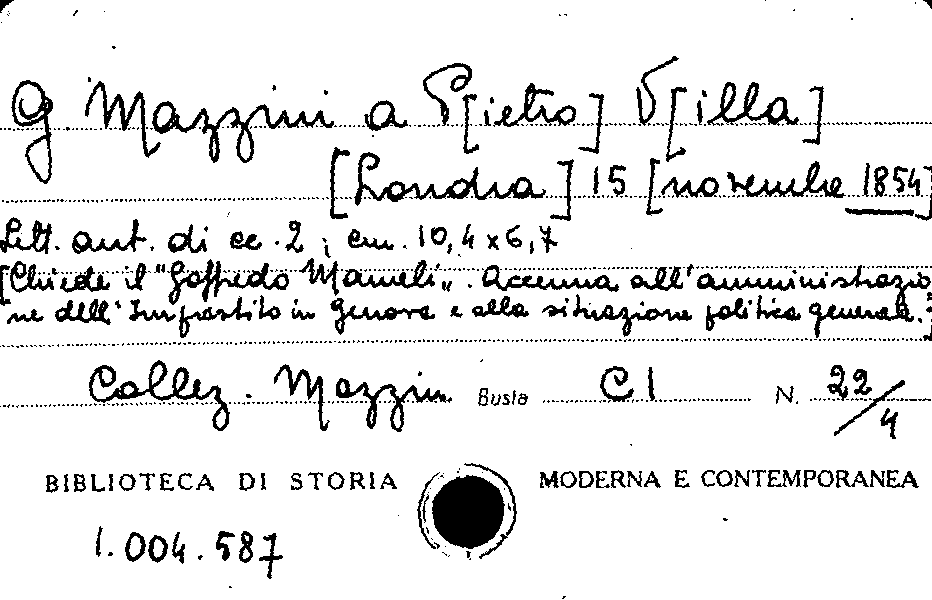 G. Mazzini a P[ietro] V[illa]
[Londra] 15 [novembre 1854]
Lett. aut. di cc. 2; cm. 10,4x6,7
[Chiede il "Goffredo Mameli". Accenna all'amministrazio
ne dell'Imprestito in Genova e alla situazione politica generale.]
Collez. Mazzini Busta C I N. 22/4
BIBLIOTECA DI STORIA MODERNA E CONTEMPORANEA
1.004.587